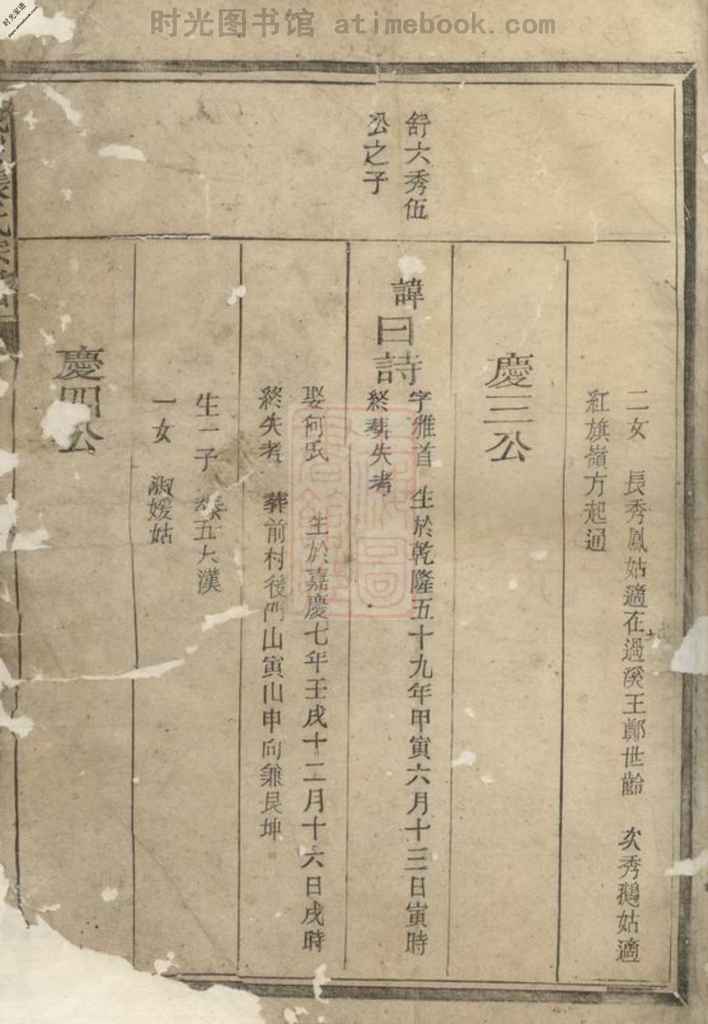 时光图书馆 atimebook.com
时光家谱
二女 長秀鳳姑適在過溪王鄭世齡 次秀鵝姑適
紅旗嶺方起通
慶三公
舒六秀伍
公之子
諱曰詩
字雅首 生於乾隆五十九年甲寅六月十三日寅時
終葬失考
娶何氏 生於嘉慶七年壬戌十二月十六日戌時
終失考 葬前村後門山寅山申向兼艮坤
生一子 泰五大漢
一女 淑媛姑
慶四公